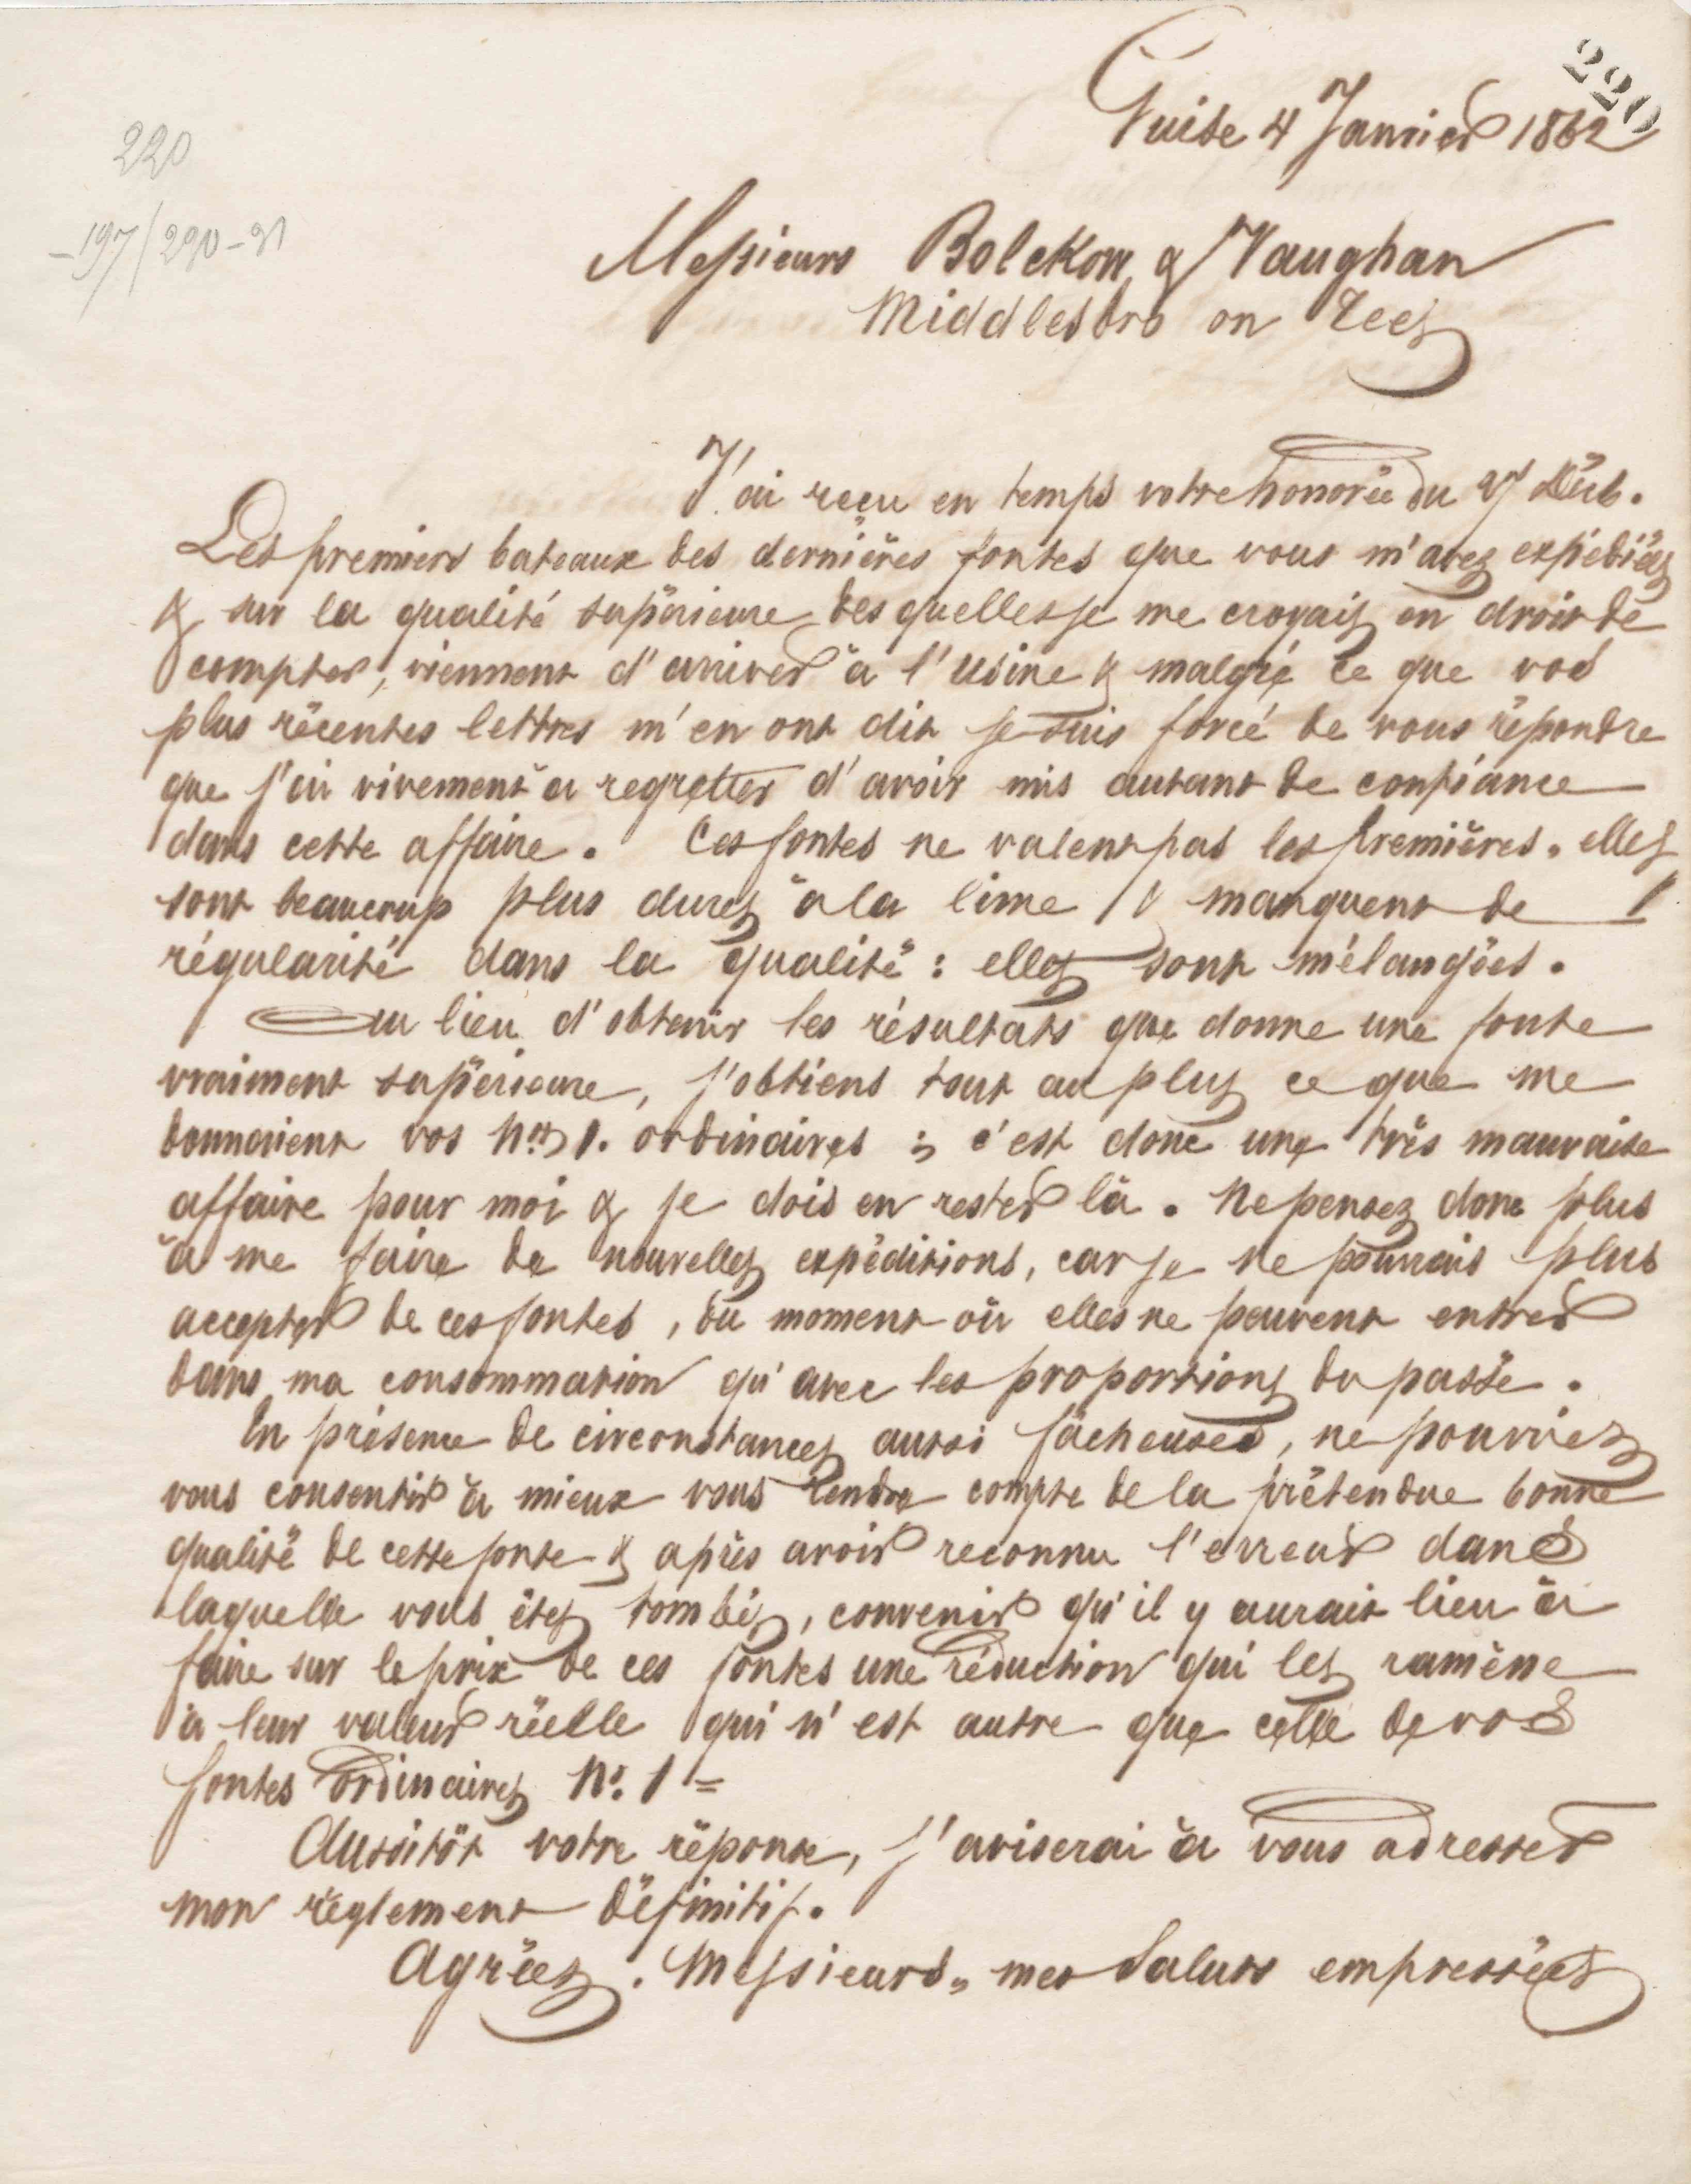 220
Guise 4 Janvier 1862
220
197/290-91
Messieurs Bolckow & Vaughan
Middlesbro on Tees
J'ai reçu en temps votre honorée du 27 Déc.
Les premiers bateaux des dernières fontes que vous m'avez expédiées
& sur la qualité supérieure desquelles je me croyais en droit de
compter, viennent d'arriver à l'usine & malgré ce que vos
plus récentes lettres m'en ont dit je suis forcé de vous répondre
que j'ai vivement à regretter d'avoir mis autant de confiance
dans cette affaire. Ces fontes ne valent pas les premières. elles
sont beaucoup plus dures à la lime & manquent de
régularité dans la qualité : elles sont mélangées.
Au lieu d'obtenir les résultats que donne une fonte
vraiment supérieure, j'obtiens tout au plus ce que me
donnaient vos Nos 1. ordinaires ; c'est donc une très mauvaise
affaire pour moi & je dois en rester là. Ne pensez donc plus
à me faire de nouvelles expéditions, car je ne pourrais plus
accepter de ces fontes, du moment où elles ne peuvent entrer
dans ma consommation qu'avec les proportions du passé.
En présence de circonstances aussi fâcheuses, ne pourriez
vous consentir à mieux vous rendre compte de la prétendue bonne
qualité de cette fonte & après avoir reconnu l'erreur dans
laquelle vous êtes tombés, convenir qu'il y aurait lieu à
faire sur le prix de ces fontes une réduction qui les ramène
à leur valeur réelle qui n'est autre que celle de vos
fontes ordinaires No. 1 =
Aussitôt votre réponse, j'aviserai à vous adresser
mon règlement définitif.
Agréez. Messieurs, mes Saluts empressées